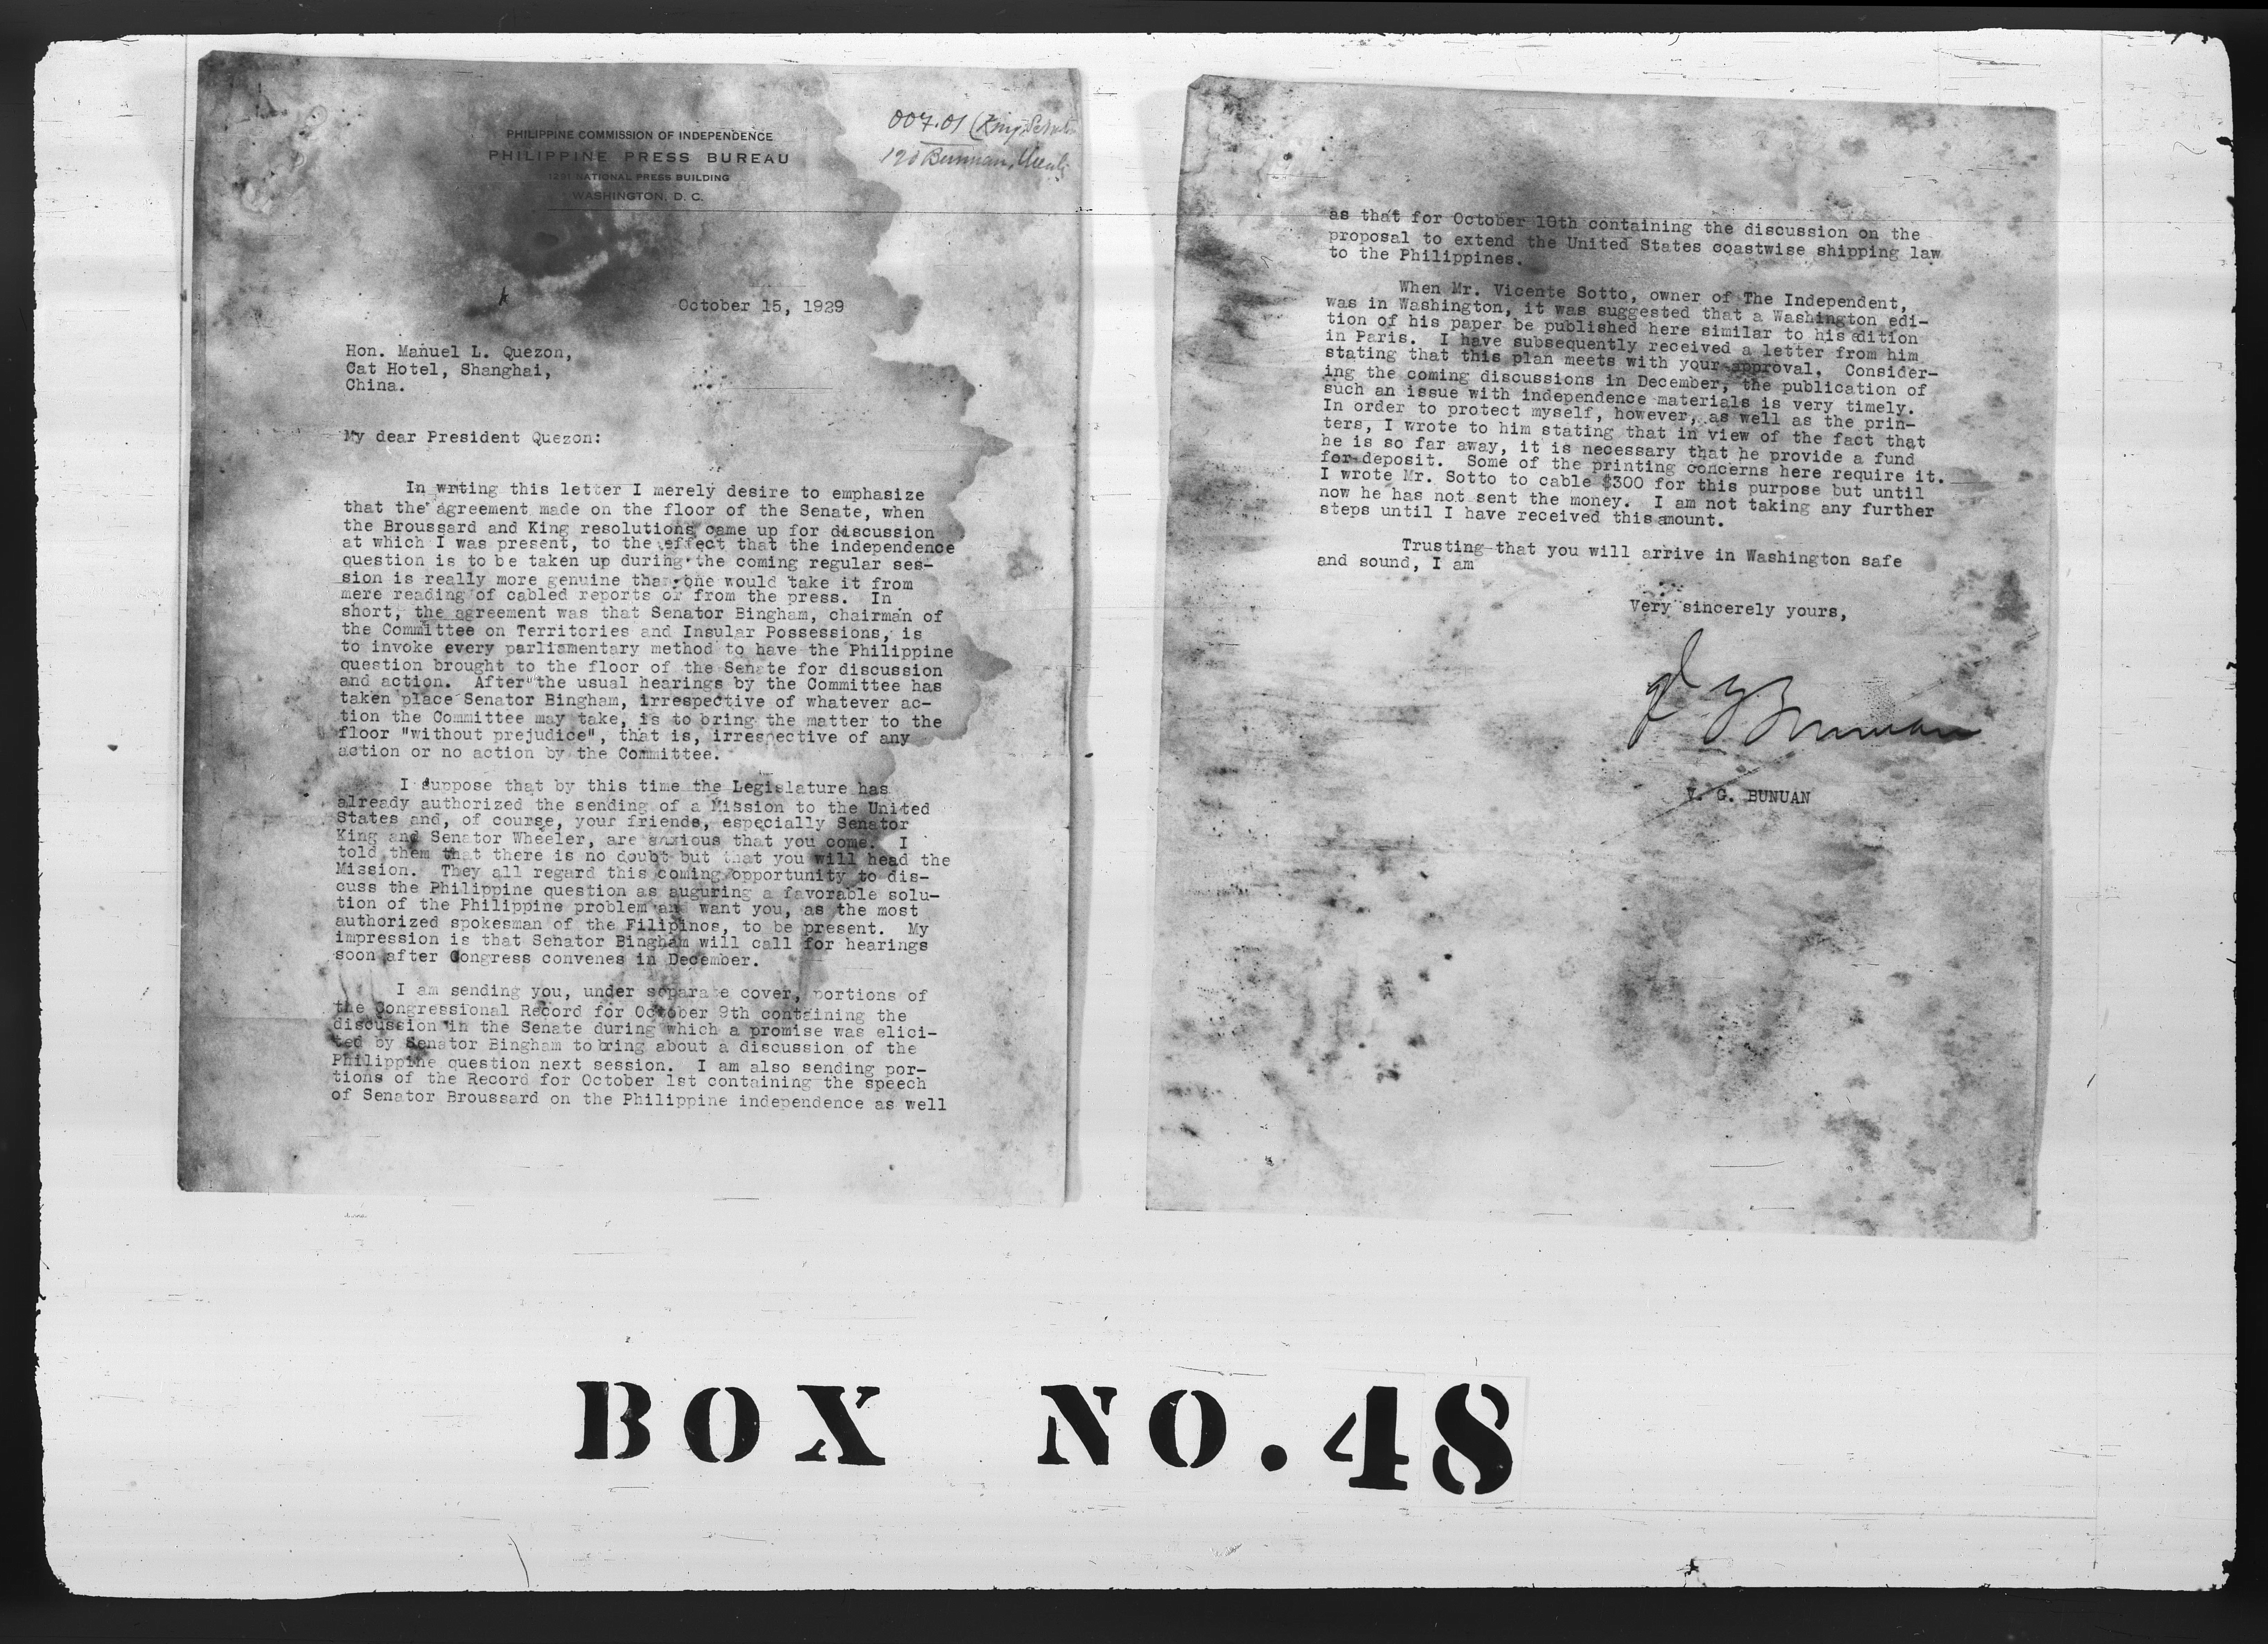 PHILIPPINE COMMISSION OF INDEPENDENCE
PHILIPPINE PRESS BUREAU
NATIONAL PRESS BUILDING
WASHINGTON, D. C.
007.01 (King
Bunuan,
October 15, 1929
Hon. Manuel L. Quezon,
Cat Hotel, Shanghai,
China.
My dear President Quezon:
In writing this letter I merely desire to emphasize
that the agreement made on the floor of the Senate, when
the Broussard and King resolutions came up for discussion
at which I was present, to the effect that the independence
question is to be taken up during the coming regular ses-
sion is really more genuine than one would take it from
mere reading of cabled reports or from the press. In
short, the agreement was that Senator Bingham, chairman of
the Committee on Territories and Insular Possessions, is
to invoke every parliamentary method to have the Philippine
question brought to the floor of the Senate for discussion
and action. After the usual hearings by the Committee has
taken place Senator Bingham, irrespective of whatever ac-
tion the Committee may take, is to bring the matter to the
floor "without prejudice", that is, irrespective of any
action or no action by the Committee.
I suppose that by this time the Legislature has
already authorized the sending of a Mission to the United
States and, of course, your friends, especially Senator
King and Senator Wheeler, are anxious that you come. I
told them that there is no doubt but that you will head the
Mission. They all regard this coming opportunity to dis-
cuss the Philippine question as auguring a favorable solu-
tion of the Philippine problem and want you, as the most
authorized spokesman of the Filipinos, to be present. My
impression is that Senator Bingham will call for hearings
soon after Congress convenes in December.
I am sending you, under separate cover, portions of
the Congressional Record for October 9th containing the
discussion in the Senate during which a promise was elici-
ted by Senator Bingham to bring about a discussion of the
Philippine question next session. I am also sending por-
tions of the Record for October 1st containing the speech
of Senator Broussard on the Philippine independence as well
as that for October 10th containing the discussion on the
proposal to extend the United States coastwise shipping law
to the Philippines.
When Mr. Vicente Sotto, owner of The Independent,
was in Washington, it was suggested that a Washington edi-
tion of his paper be published here similar to his edition
in Paris. I have subsequently received a letter from him
stating that this plan meets with your approval. Consider-
ing the coming discussions in December, the publication of
such an issue with independence materials is very timely.
In order to protect myself, however, as well as the prin-
ters, I wrote to him stating that in view of the fact that
he is so far away, it is necessary that he provide a fund
for deposit. Some of the printing concerns here require it.
I wrote Mr. Sotto to cable $300 for this purpose but until
now he has not sent the money. I am not taking any further
steps until I have received this amount.
Trusting that you will arrive in Washington safe
and sound, I am
Very sincerely yours,
Bunuan
V. G. BUNUAN
BOX NO. 48